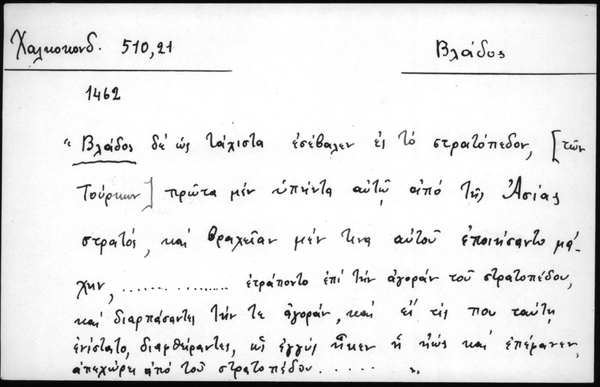 Χαλκοκονδ. 510,21
Βλάδος
1462
“ Βλάδος δέ ὡς τάχιστα ἐσέβαλεν ἐς τό στρατόπεδον, [τῶν
Τούρκων] πρῶτα μέν ὑπήντα αὐτῷ ἀπό τῆς Ἀσίας
στρατός, καί βραχεῖαν μέν τινα αὐτοῦ ἐποιήσαντο μά-
χην, .................. ἐτράποντο ἐπί τήν ἀγοράν τοῦ στρατοπέδου,
καί διαρπάσαντες τήν τε ἀγοράν, καί εἴ τίς που ταύτῃ
ἐνίστατο, διαφθείραντες, ὡς ἐγγύς ἧκεν ἡ ἠώς καί ἐπέμανεν,
ἀπεχώρει ἀπό τοῦ στρατοπέδου..... ”.